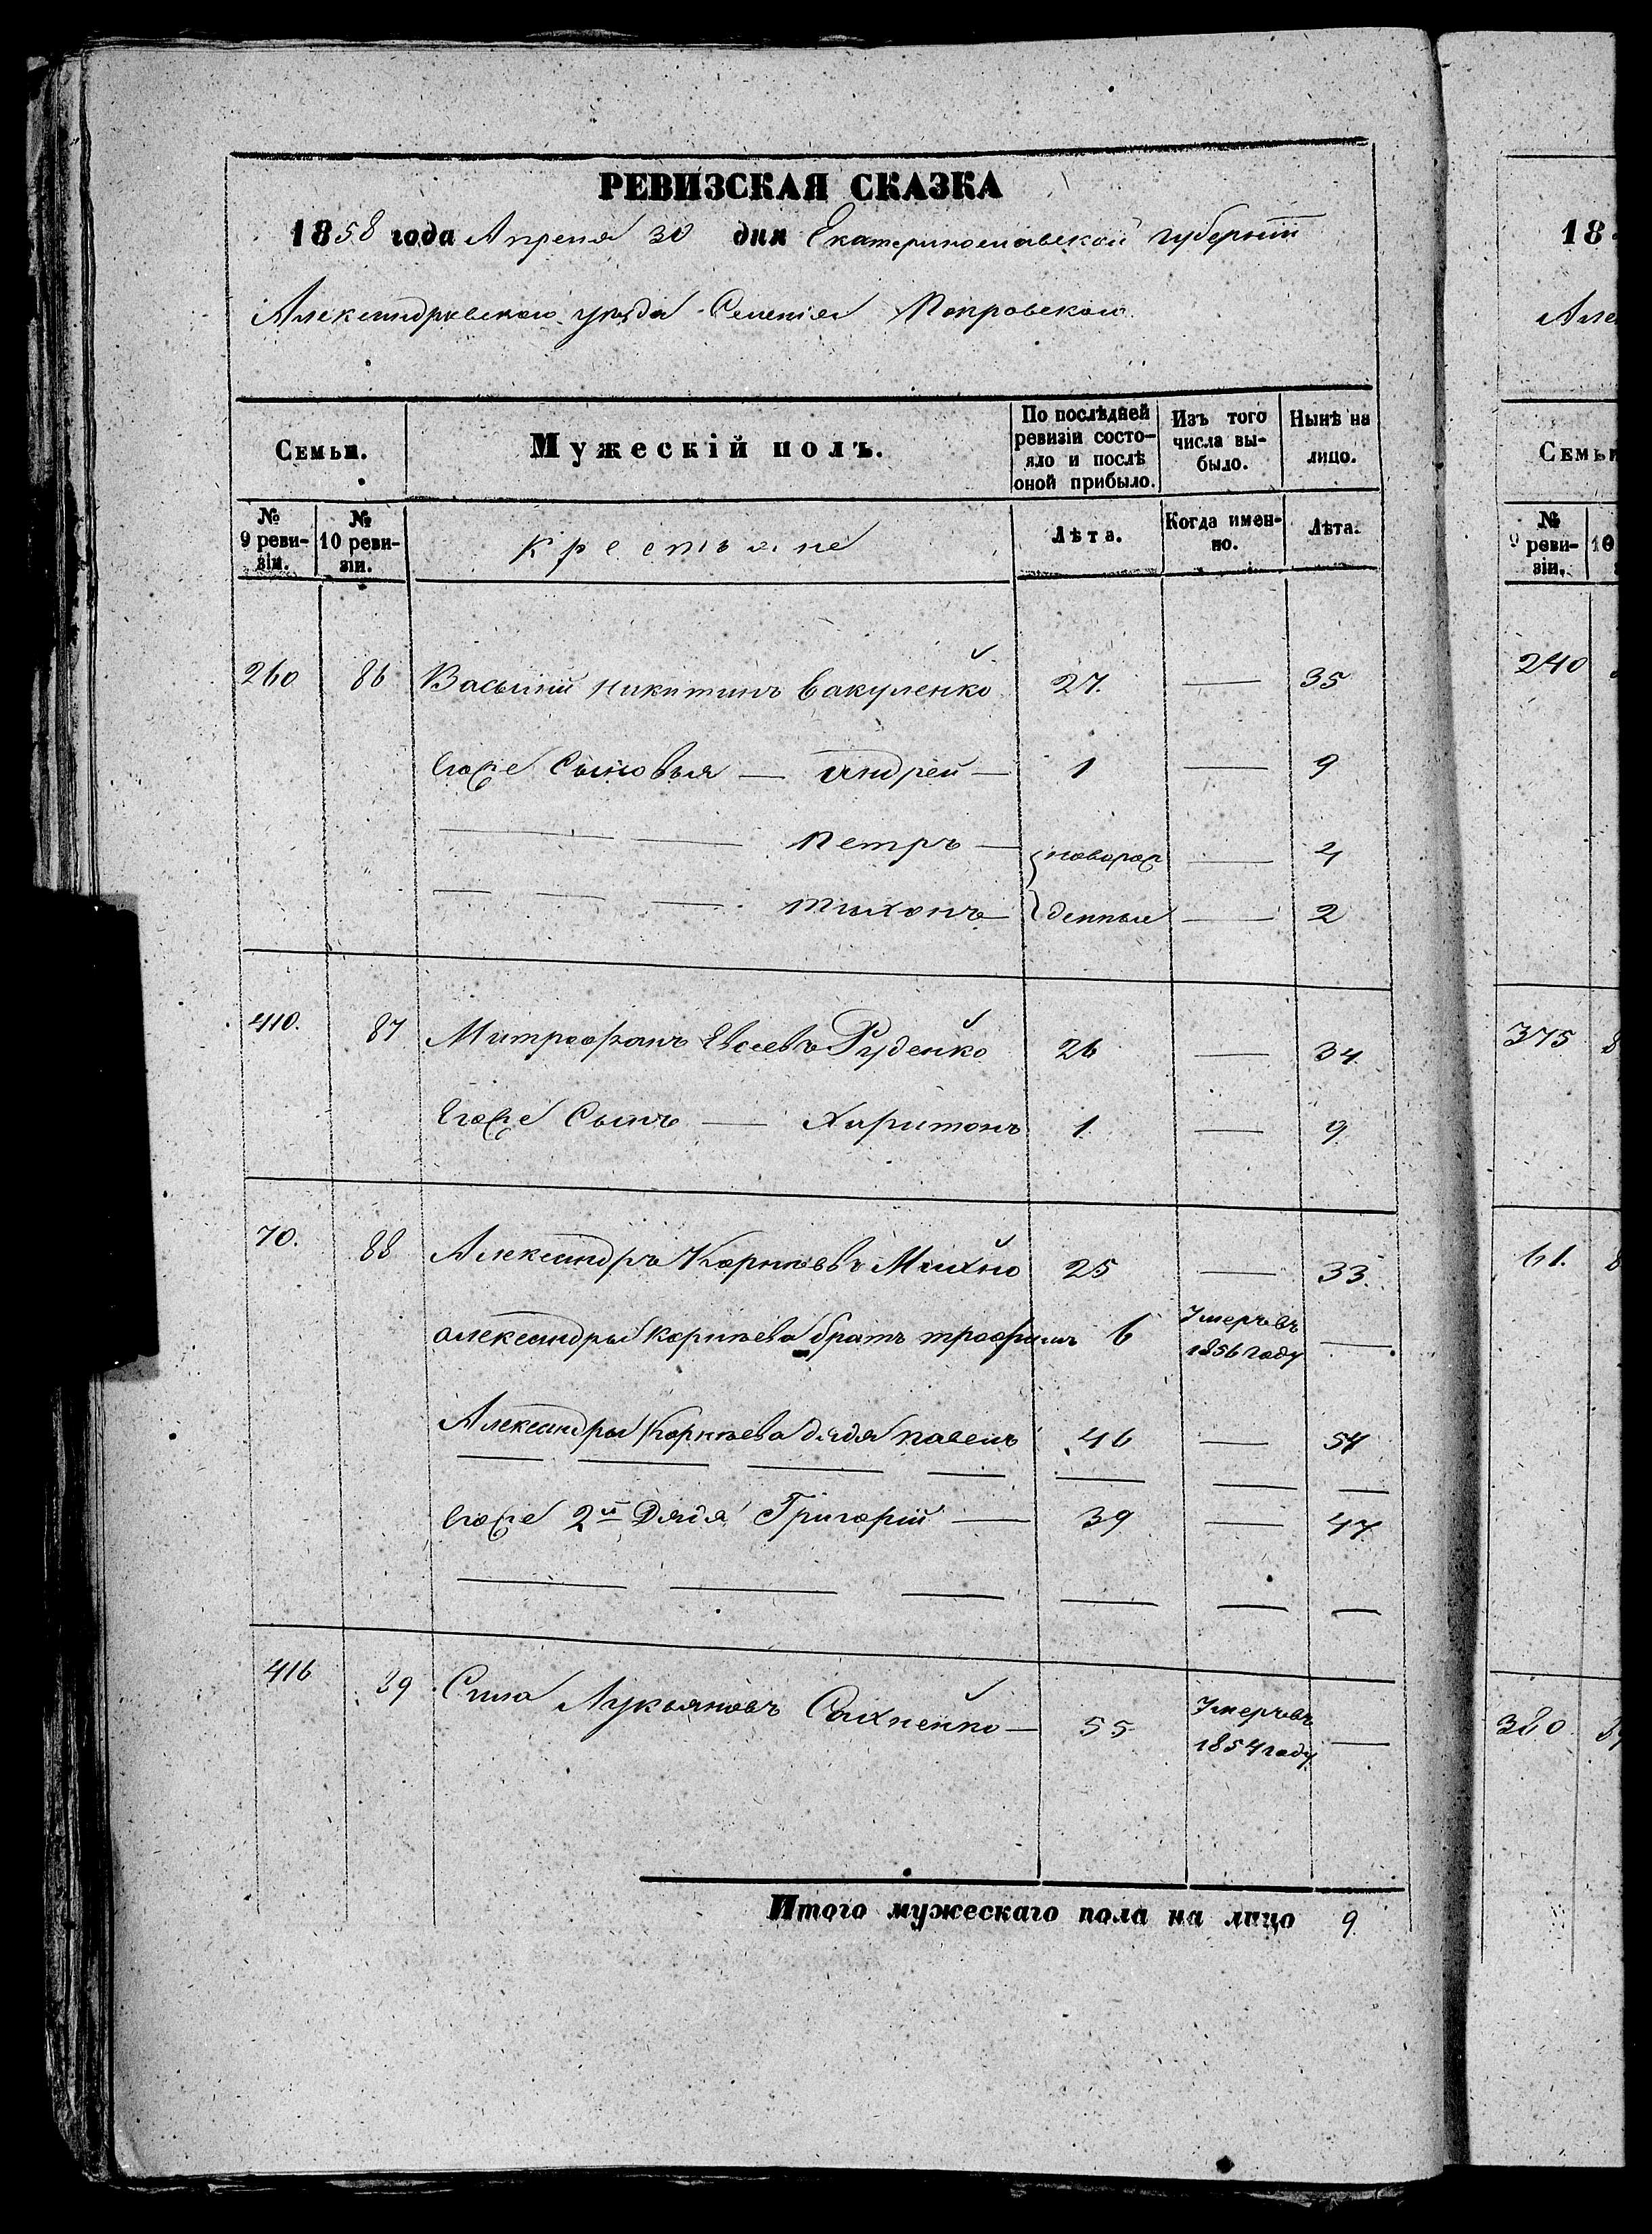 РЕВИЗСКАЯ СКАЗКА
1858 года Апреля 30 дня Екатеринославской губерніи
Александровскаго уѣзда Селенія Покровскаго
Семьи.
Мужескій полъ.
По послѣдней ревизіи состояло и послѣ оной прибыло.
Изъ того числа выбыло.
Нынѣ на лицо.
№ 9 ревизіи.
№ 10 ревизіи.
Крестьяне
Лѣта.
Когда именно.
Лѣта.
260 86 Василій Никитинъ Вакуленко 27. — 35
Егоже Сыновья — Андрей — 1 — 9
— — Петръ — новорож — 4
— — — Тихонъ — денные — 2
410. 87 Митрофанъ Евсеевъ Руденко 26 — 34.
Егоже Сынъ — Харитонъ 1. — 9
70. 88 Александръ Корнѣевъ Михно 25 — 33.
Александры Корнѣева братъ трофимъ 6 Умеръ въ 1856 году —
Александры Корнѣева дядя павелъ 46 — 54
Егоже 2й Дядя Григорій — 39 — 47.
416 89 Сила Лукьяновъ Сахненко — 55 Умеръ въ 1854 году —
Итого мужескаго пола на лицо 9.
18
Але
Семьи
№ 9 ревизіи.
10
240
375 8
61. 8
380